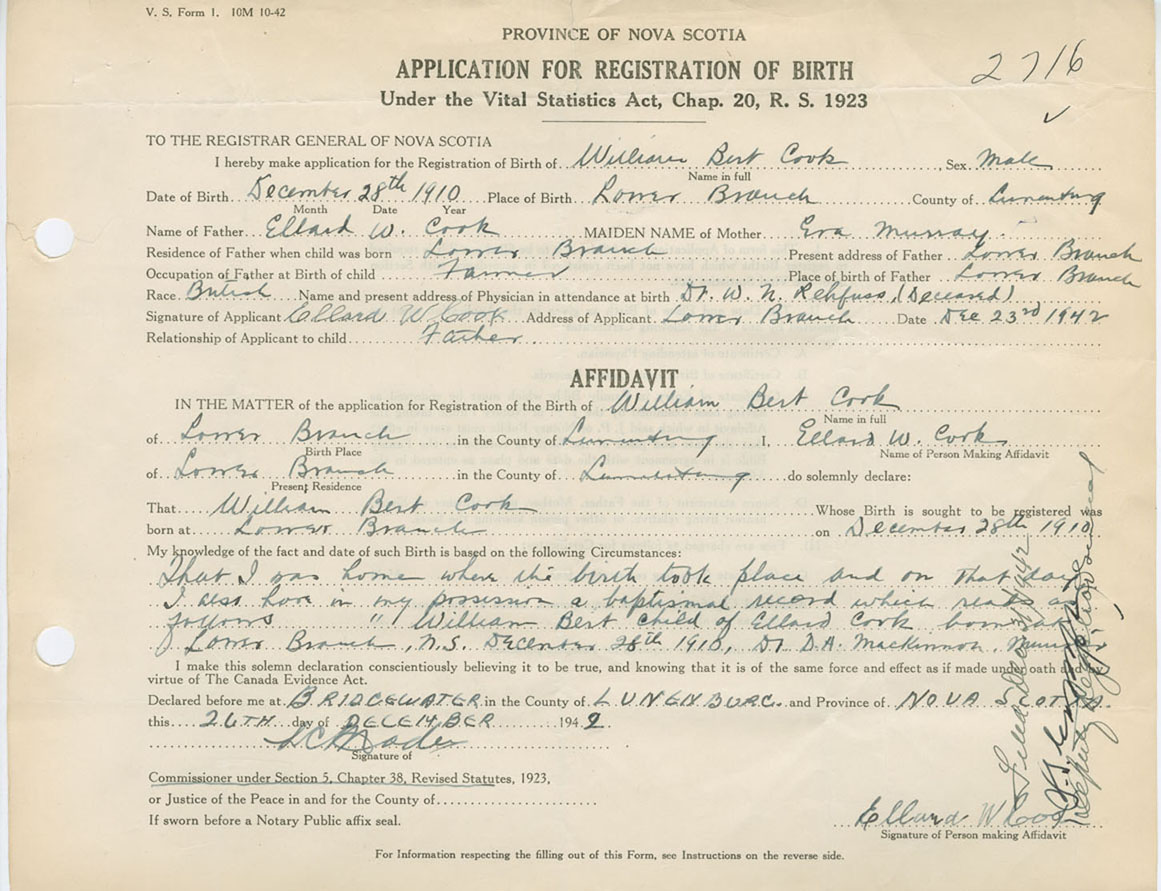 V. S. Form 1. 10M 10-42
PROVINCE OF NOVA SCOTIA
2716
APPLICATION FOR REGISTRATION OF BIRTH
Under the Vital Statistics Act, Chap. 20, R. S. 1923
TO THE REGISTRAR GENERAL OF NOVA SCOTIA
I hereby make application for the Registration of Birth of William Bert Cook, Sex Male
Name in full
Date of Birth December 28th 1910 Place of Birth Lower Branch County of Lunenburg
Month Date Year
Name of Father Ellard W. Cook MAIDEN NAME of Mother Eva Murray.
Residence of Father when child was born Lower Branch Present address of Father Lower Branch
Occupation of Father at Birth of child Farmer Place of birth of Father Lower Branch
Race British Name and present address of Physician in attendance at birth Dr. W. N. Rehfuss, (Deceased)
Signature of Applicant Ellard W Cook Address of Applicant Lower Branch Date Dec 23rd 1942
Relationship of Applicant to child Father
AFFIDAVIT
IN THE MATTER of the application for Registration of the Birth of William Bert Cook
Name in full
of Lower Branch in the County of Lunenburg I, Ellard W. Cook
Birth Place Name of Person Making Affidavit
of Lower Branch in the County of Lunenburg do solemnly declare:
Present Residence
That William Bert Cook Whose Birth is sought to be registered was
born at Lower Branch on December 28th 1910
My knowledge of the fact and date of such Birth is based on the following Circumstances:
That I was home where the birth took place and on that day
I also have in my possession a baptismal record which reads as
follows " William Bert child of Ellard Cook born at
Lower Branch, N.S. December 28th 1910, Dr D.A. Mackinnon, Minister
I make this solemn declaration conscientiously believing it to be true, and knowing that it is of the same force and effect as if made under oath and by
virtue of The Canada Evidence Act.
Declared before me at BRIDGEWATER in the County of LUNENBURG. and Province of NOVA SCOTIA.
this 26TH day of DECEMBER 1942
Signature of
Commissioner under Section 5, Chapter 38, Revised Statutes, 1923,
or Justice of the Peace in and for the County of
If sworn before a Notary Public affix seal.
Ellard W Cook
Signature of Person making Affidavit
For Information respecting the filling out of this Form, see Instructions on the reverse side.
Filed Dec 30 1942
Deputy Registrar General